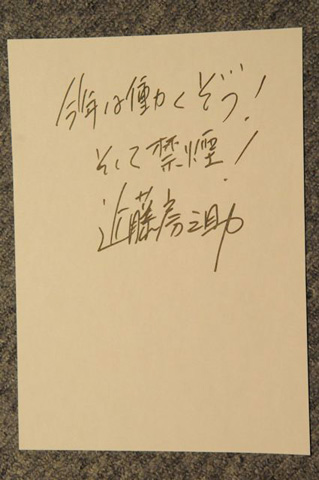 今年は働くぞう！
そして禁煙！
近藤房之助